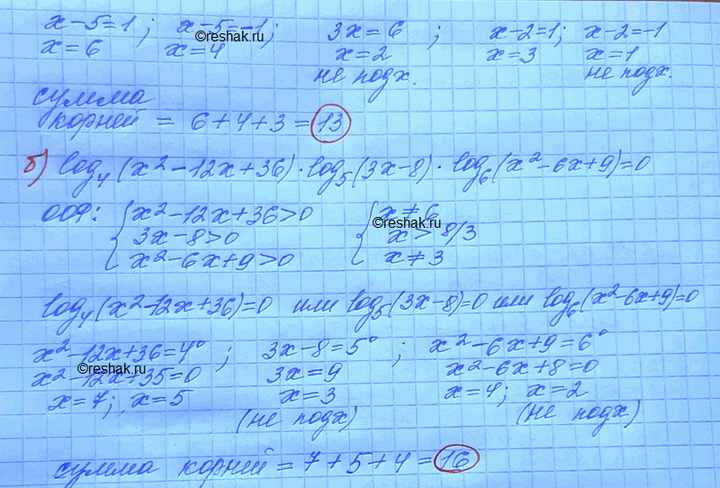 x-5=1; x-5=-1; 3x=6; x-2=1; x-2=-1
©reshak.ru
x=6 x=4 x=2 x=3 x=1
не подх. не подх.
сумма
корней = 6+4+3=13
б) log₄(x²-12x+36)·log₅(3x-8)·log₆(x²-6x+9)=0
ООФ: { x²-12x+36>0 { x≠6
©reshak.ru
3x-8>0 x>8/3
x²-6x+9>0 x≠3
log₄(x²-12x+36)=0 или log₅(3x-8)=0 или log₆(x²-6x+9)=0
x²-12x+36=4⁰; 3x-8=5⁰; x²-6x+9=6⁰
©reshak.ru
x²-12x+35=0 3x=9 x²-6x+8=0
x=7; x=5 x=3 x=4; x=2
(не подх) (не подх)
сумма корней = 7+5+4=16